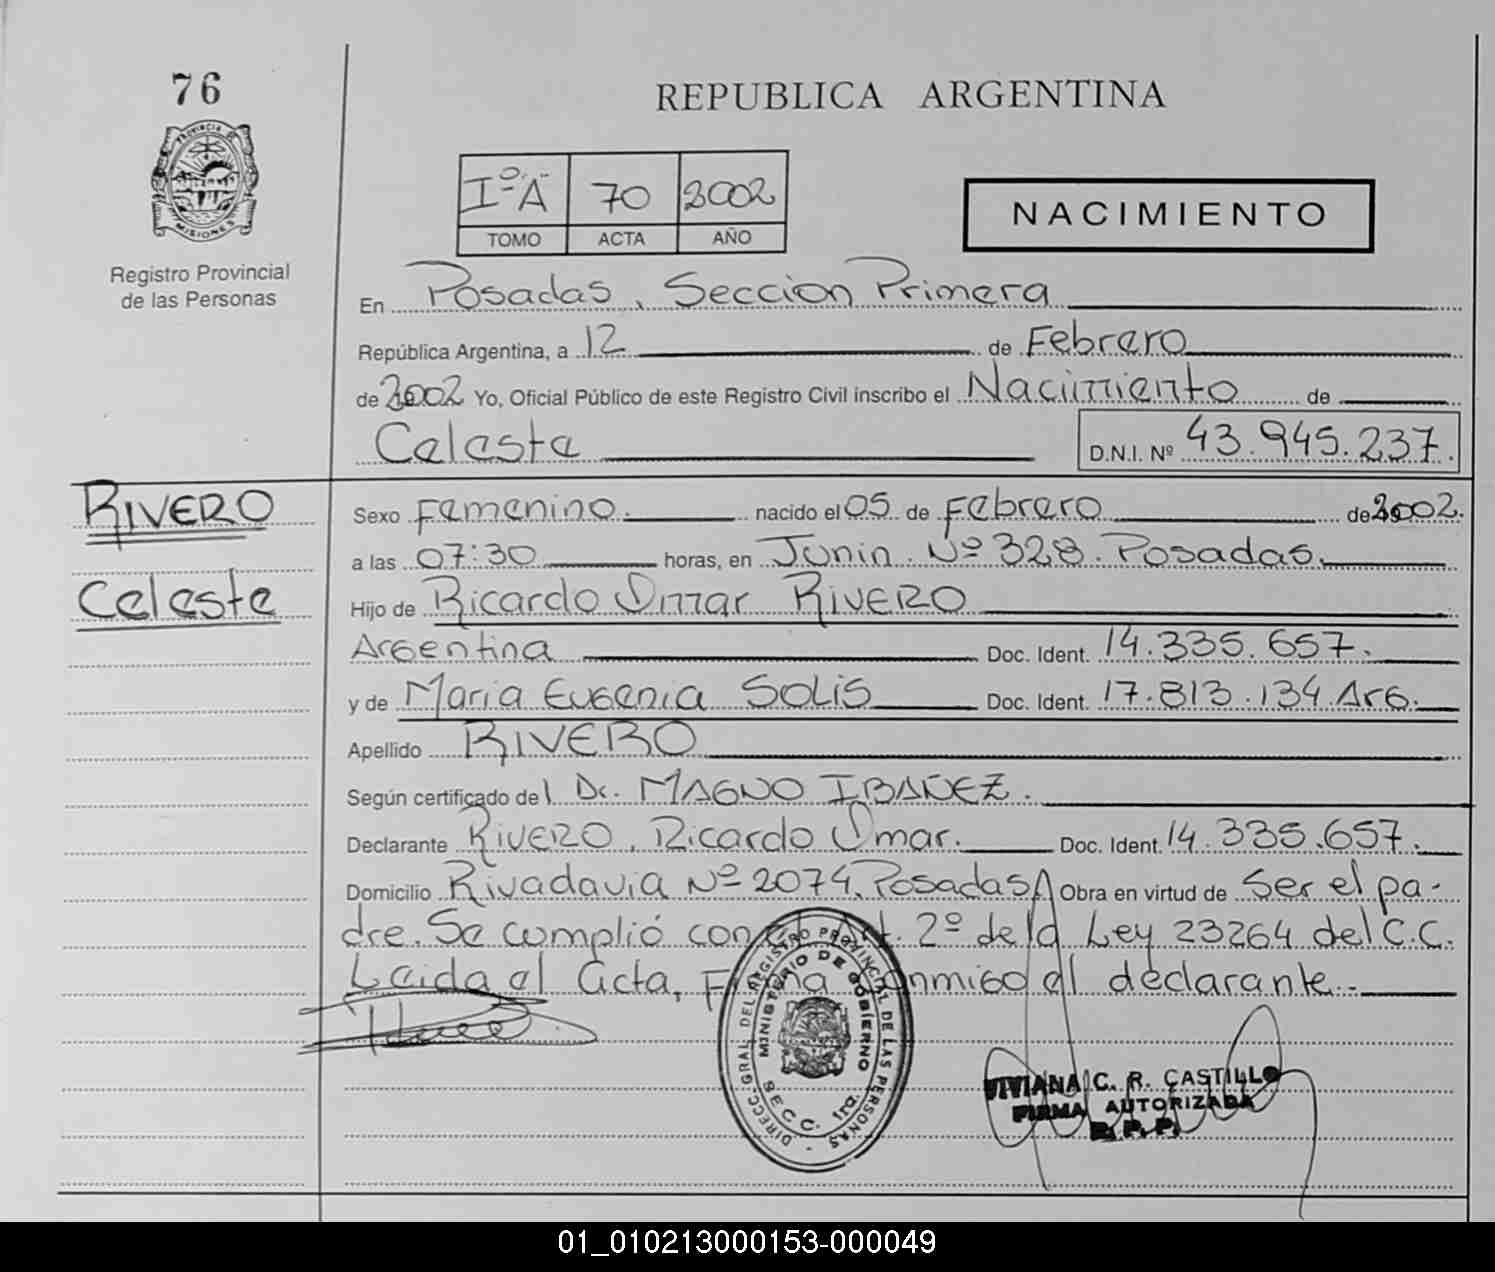 76
REPUBLICA ARGENTINA
PROVINCIA DE
MISIONES
Registro Provincial
de las Personas
Iº"A" 70 2002
TOMO ACTA AÑO
NACIMIENTO
En Posadas, Seccion Primera
República Argentina, a 12 de Febrero
de 2002 Yo, Oficial Público de este Registro Civil inscribo el Nacimiento de
Celeste D.N.I. Nº 43.945.237.
RIVERO
Celeste
Sexo Femenino. nacido el 05 de Febrero de 2002.
a las 07:30 horas, en Junin Nº 328. Posadas.
Hijo de Ricardo Omar RIVERO
Argentina Doc. Ident. 14.335.657.
y de Maria Eugenia SOLIS Doc. Ident. 17.813.134 Arg.
Apellido RIVERO
Según certificado del Dr. MAGNO IBAÑEZ.
Declarante RIVERO, Ricardo Omar. Doc. Ident. 14.335.657.
Domicilio Rivadavia Nº 2074, Posadas Obra en virtud de Ser el pa-
dre. Se cumplió con el Art. 2º de la Ley 23264 del C.C.
Leida el Acta, Firma conmigo el declarante.-
DIRECC. GRAL. DEL REGISTRO PROVINCIAL DE LAS PERSONAS
MINISTERIO DE GOBIERNO
SECC. 1ra.
VIVIANA C. R. CASTILLO
FIRMA AUTORIZADA
R. P. P.
01_010213000153-000049